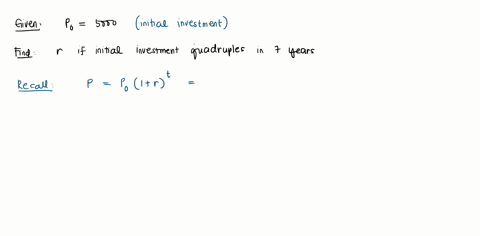 Given: P₀ = 5000 (initial investment)
Find: r if initial investment quadruples in 7 years
Recall: P = P₀ (1+r)ᵗ =